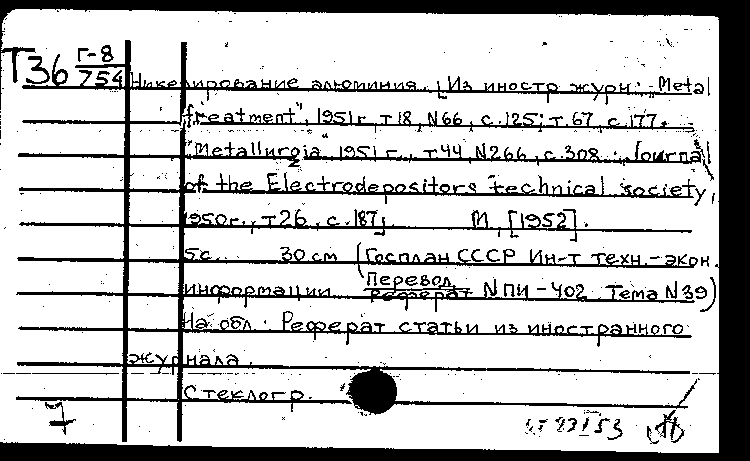 Т36 Г-8
754
Никелирование алюминия. [Из иностр журн: „Metal
treatment", 1951г т18, N66, с.125; т.67, с.177.
"Metallurgia" 1951 г., т44, N266, с.308. Journal
of the Electrodepositors technical society,
1950г., т26, с.187]. М, [1952].
5с. 30 см (Госплан СССР Ин-т техн.-экон.
информации Перевод N ПИ-402 Тема N39)
реферат
На обл. Реферат статьи из иностранного
журнала.
Стеклогр.
7